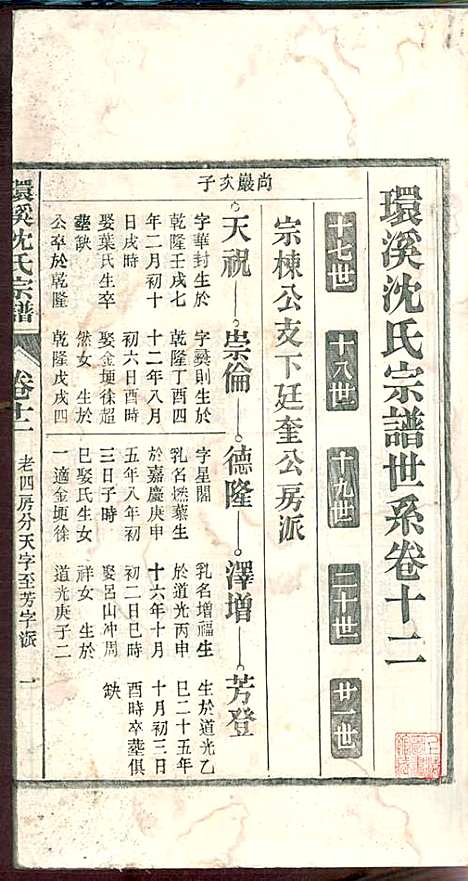 環溪沈氏宗譜世系卷十二
十七世 十八世 十九世 二十世 廿一世
宗棟公支下廷奎公房派
尚嚴次子
天祝 崇倫 德隆 澤增 芳登
字華封生於
乾隆壬戌七
年二月初十
日戌時
娶葉氏生卒
塟缺
公卒於乾隆
字彝則生於
乾隆丁酉四
十二年八月
初六日酉時
娶金埂徐超
然女 生於
乾隆戊戌四
字星閣
乳名燃藜生
於嘉慶庚申
五年八年初
三日子時
巳娶氏生女
一適金埂徐
乳名增福生
於道光丙申
十六年十月
初二日巳時
娶呂山冲周
祥女 生於
道光庚子二
生於道光乙
巳二十五年
十月初三日
酉時卒塟俱
缺
環溪沈氏宗譜
卷十二
老四房分天字至芳字派
一